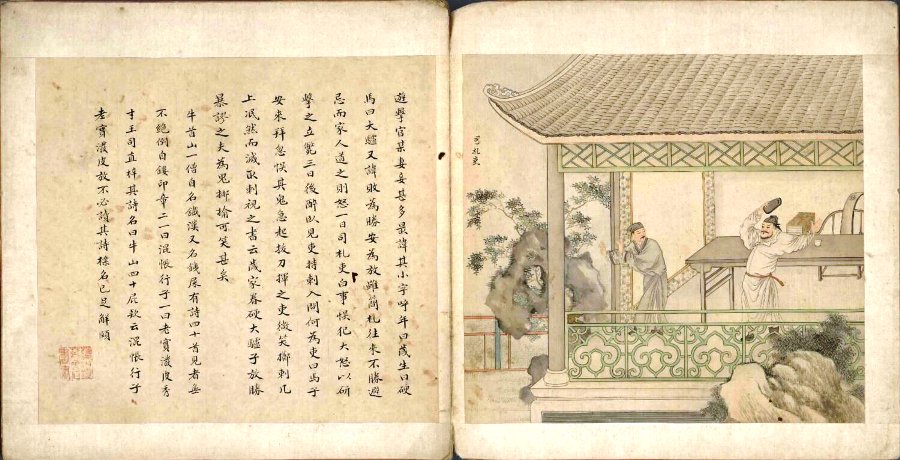 遊擊官某妻妾甚多最諱其小字呼年曰歲生曰硬
馬曰大驢又諱敗為勝安為放雖簡札往來不勝避
忌而家人道之則怒一日司札吏白事悞犯大怒以硏
擊之立斃三日後醉臥見吏持刺入問何為吏曰馬子
安來拜忽悞其鬼急起拔刀揮之吏微笑擲刺几
上泯然而滅取刺視之書云歲家眷硬大驢子放勝
暴謬之夫為鬼揶揄可笑甚矣
牛首山一僧自名鐵漢又名鐵屎有詩四十首見者無
不絕倒自鏤印章二一曰混帳行子一曰老實潑皮秀
才王司直梓其詩名曰牛山四十屁款云混帳行子
老實潑皮放不必讀其詩標名已足解頤
司札吏